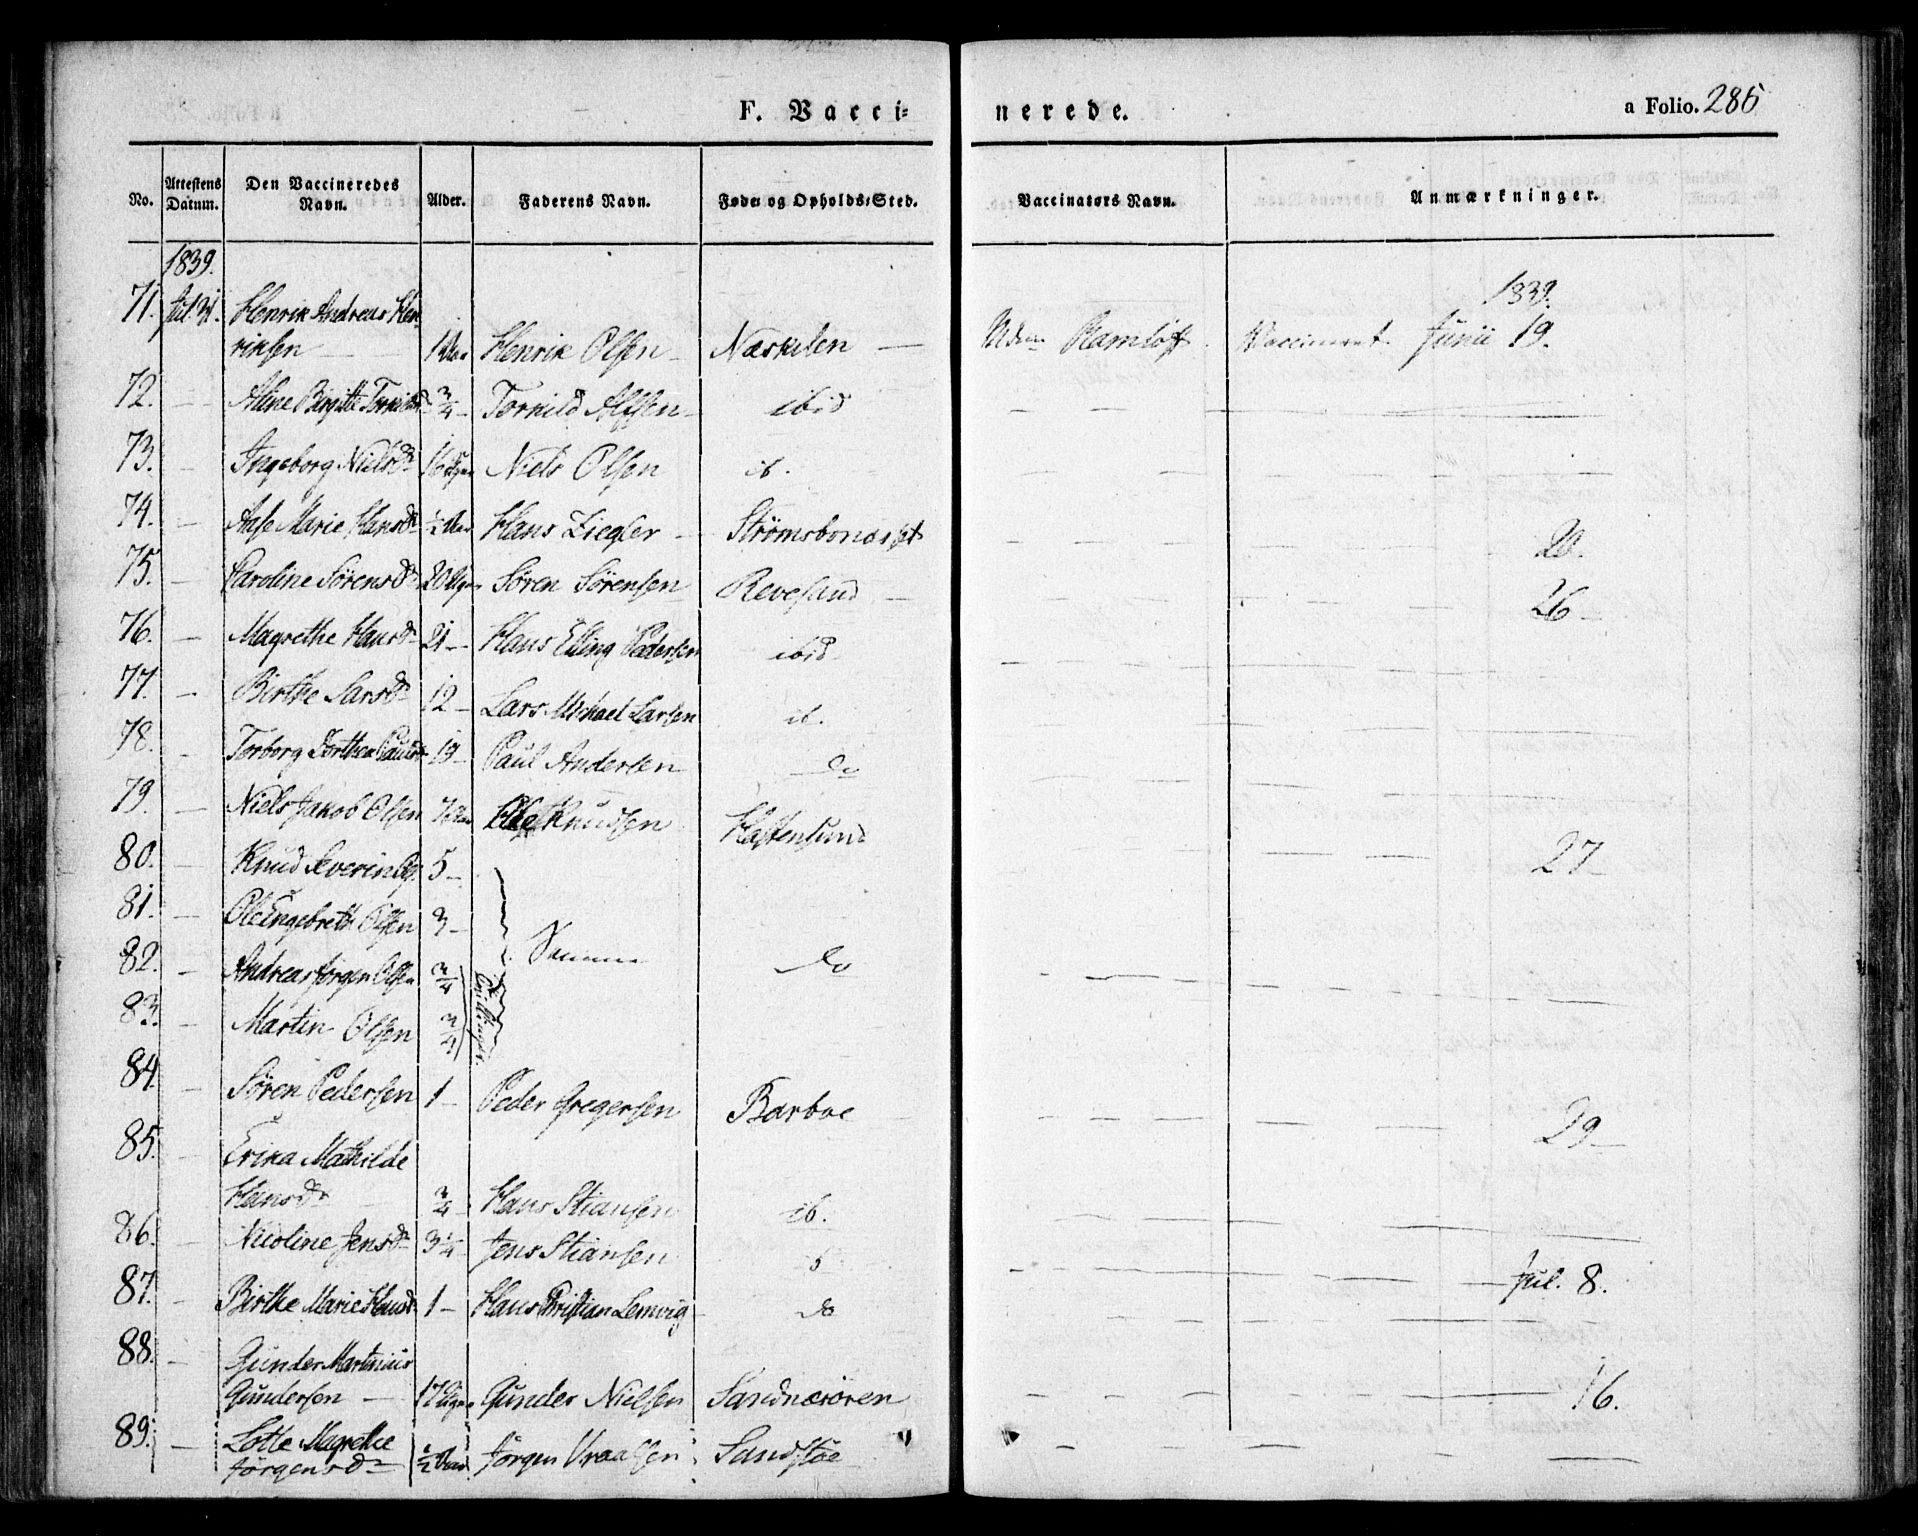 F. Vacci=
nerede.
a Folio. 285
No.
Attestens Datum.
Den Vaccineredes Navn.
Alder.
Faderens Navn.
Føde og Opholds-Sted.
Vaccinators Navn.
Anmærkninger.
1839.
1839.
71. Jul. 31. Henrik Andreas Hen
riksen — 1 Aar Henrik Olsen Næskilen — Ramløff Vaccineret Junii 19.
72. — Birgitte 3/4 Torkild Alfsen ibid — —
73. — Ingeborg Nielsd 16 Niels Olsen ib. — —
74. — Aase Marie Hansd 1/2 Aar Hans Ziegler Strømsbon — — 20.
75. — Caroline Sørensd 20 Ugr Søren Sørensen Revesand — — 26
76. — Magrethe Hansd 21 — Hans Elling Pedersen ibid — —
77. — Birthe Larsd 12 — Lars Michael Larsen ib. — —
78. — Torborg 19 — Paul Andersen do — —
79. — Niels Jakob Olsen 7 Aar Ole Knudsen Hastensund
80. — Knud Severin 5 — 27
81. — Ole Engebreth Olsen 3 —
Samme do
82. — Andreas Jørgen Olsen 3/4 — —
Tvillinger.
83. — Martin Olsen 3/4
84. — Søren Pedersen 1 — Peder Gregersen Barboe — — 29
85. — Erika Mathilde
Hansd 3/4 Hans Stiansen ib. — —
86. — Nicoline Jensd 3 1/4 Jens Stiansen — — Jul. 8.
87. — Birthe Marie Hansd 1 — Hans Christian Lemvig do — —
88. — Gunder Martinius
Gundersen — 17 Ugr Gunder Nielsen Sandnæsøren — — 16.
89. — Lotte Magrethe
Jørgensd 1/2 Aar Jørgen Vraalsen Sandstøe — —